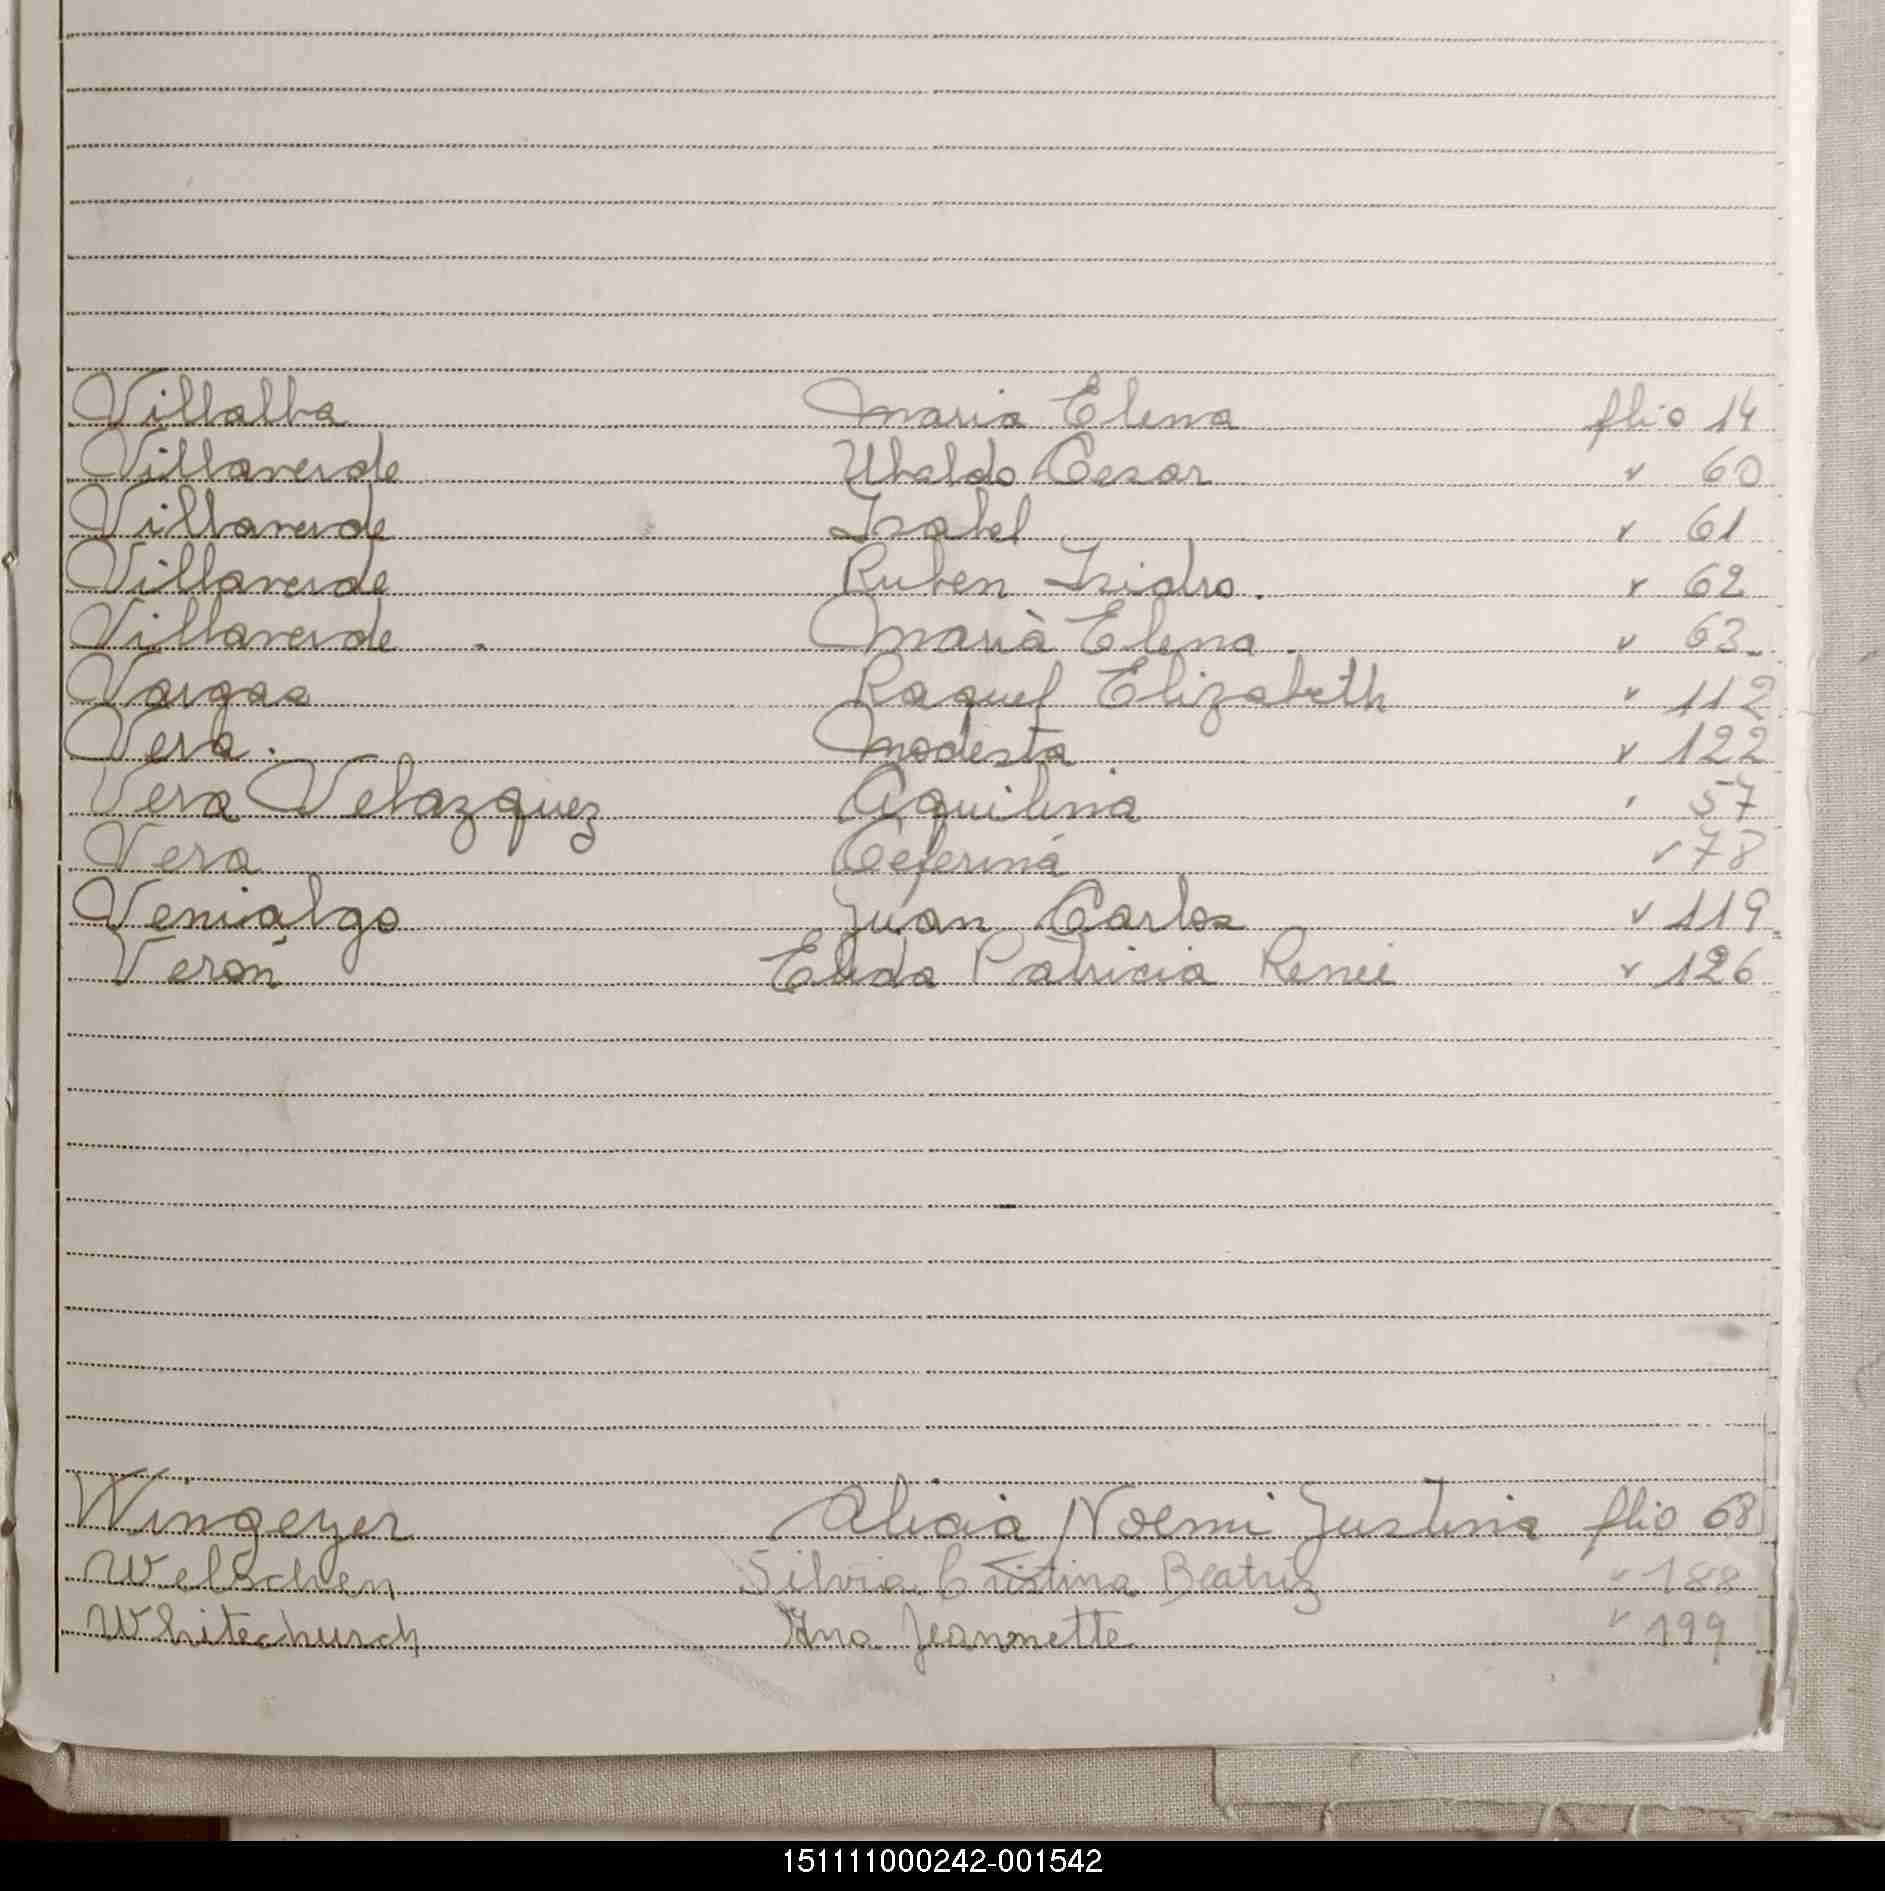 Villalba Maria Elena flio 14
Villaverde Ubaldo Cesar " 60
Villaverde Isabel " 61
Villaverde Ruben Isidro. " 62
Villaverde . Marià Elena. " 63.
Vargas Raquel Elizabeth " 112
Vera. Modesta " 122
Vera Velazquez Aquilina " 57
Vera Ceferina " 78
Venialgo Juan Carlos " 119
Verón Elida Patricia Renee " 126
Wingeyer Alicia Noemi Justina flio 68
Welschen Silvia Cristina Beatriz " 188
Whitechurch Ana Jeannette " 199
151111000242-001542